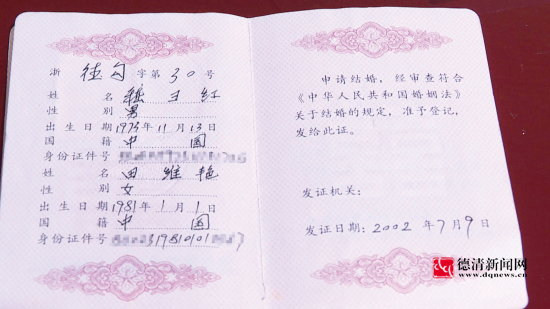 浙 字第30号
姓 名 红
性 别 男
出生日期 1973年11月13日
国 籍 中 国
身份证件号
姓 名 田 维 艳
性 别 女
出生日期 1981年1月1日
国 籍 中 国
身份证件号
申请结婚，经审查符合
《中华人民共和国婚姻法》
关于结婚的规定，准予登记，
发给此证。
发证机关：
发证日期：2002 年7月9日
德清新闻网
www.dqnews.cn